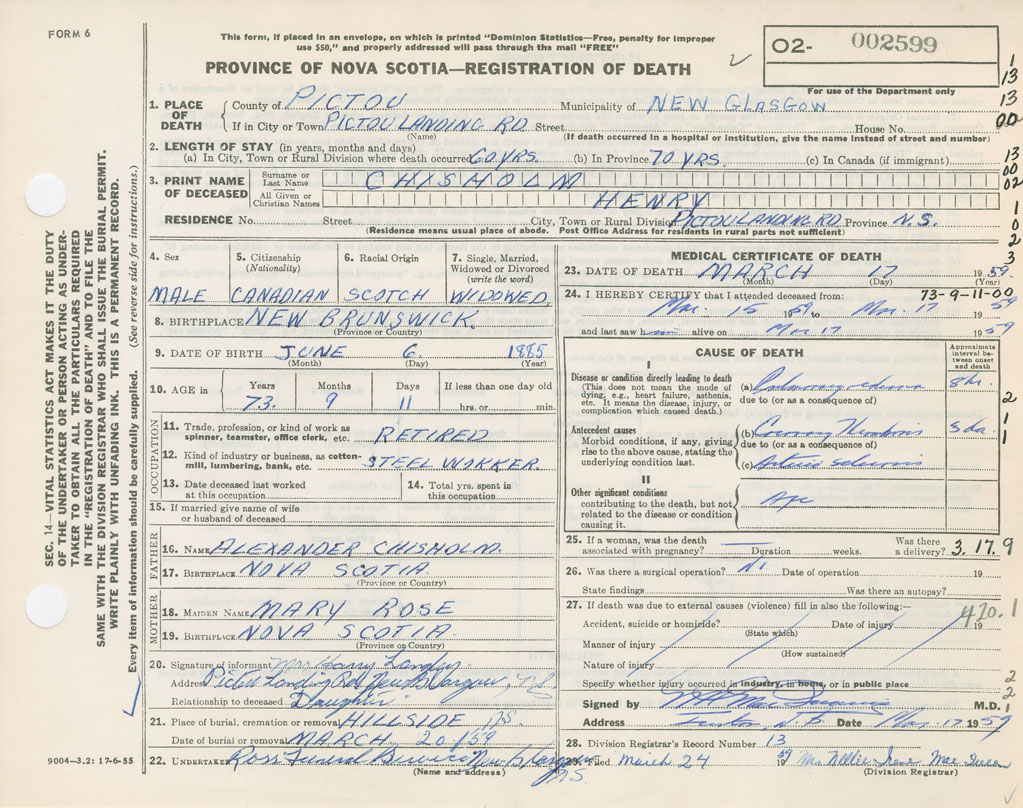 FORM 6
This form, if placed in an envelope, on which is printed "Dominion Statistics—Free, penalty for improper
use $50," and properly addressed will pass through the mail "FREE"
PROVINCE OF NOVA SCOTIA—REGISTRATION OF DEATH
O2- 002599
For use of the Department only
1. PLACE OF DEATH
County of PICTOU Municipality of NEW GLASGOW
If in City or Town PICTOU LANDING RD Street House No.
(Name) (If death occurred in a hospital or institution, give the name instead of street and number)
2. LENGTH OF STAY (in years, months and days)
(a) In City, Town or Rural Division where death occurred 60 YRS. (b) In Province 70 YRS. (c) In Canada (if immigrant)
3. PRINT NAME OF DECEASED
Surname or Last Name CHISHOLM
All Given or Christian Names HENRY
RESIDENCE No. Street City, Town or Rural Division PICTOU LANDING RD Province N.S.
(Residence means usual place of abode. Post Office Address for residents in rural parts not sufficient)
4. Sex
MALE
5. Citizenship
(Nationality)
CANADIAN
6. Racial Origin
SCOTCH
7. Single, Married,
Widowed or Divorced
(write the word)
WIDOWED
8. BIRTHPLACE NEW BRUNSWICK.
(Province or Country)
9. DATE OF BIRTH JUNE 6. 1885
(Month) (Day) (Year)
10. AGE in Years Months Days If less than one day old
73. 9 11 hrs. or min.
OCCUPATION
11. Trade, profession, or kind of work as
spinner, teamster, office clerk, etc. RETIRED
12. Kind of industry or business, as cotton-
mill, lumbering, bank, etc. STEEL WORKER.
13. Date deceased last worked
at this occupation
14. Total yrs. spent in
this occupation
15. If married give name of wife
or husband of deceased
FATHER
16. NAME ALEXANDER CHISHOLM.
17. BIRTHPLACE NOVA SCOTIA
(Province or Country)
MOTHER
18. MAIDEN NAME MARY ROSE
19. BIRTHPLACE NOVA SCOTIA.
(Province or Country)
20. Signature of informant Mrs Harry
Address Pictou Landing Rd New Glasgow, NS
Relationship to deceased Daughter
21. Place of burial, cremation or removal HILLSIDE N.S.
Date of burial or removal MARCH 20/59
22. UNDERTAKER Ross Funeral Service New Glasgow N.S.
(Name and address)
MEDICAL CERTIFICATE OF DEATH
23. DATE OF DEATH MARCH 17 1959.
(Month) (Day) (Year)
24. I HEREBY CERTIFY that I attended deceased from: 73-9-11-00
Mar. 15 1959 to Mar. 17 1959
and last saw h alive on Mar 17 1959
CAUSE OF DEATH
Approximate
interval be-
tween onset
and death
I
Disease or condition directly leading to death
(This does not mean the mode of
dying, e.g., heart failure, asthenia,
etc. It means the disease, injury, or
complication which caused death.)
(a) Pulmonary edema 8 hr.
due to (or as a consequence of)
Antecedent causes
Morbid conditions, if any, giving
rise to the above cause, stating the
underlying condition last.
(b) Coronary Thrombosis 3 da.
due to (or as a consequence of)
(c)
II
Other significant conditions
contributing to the death, but not
related to the disease or condition
causing it.
Age
25. If a woman, was the death
associated with pregnancy? Duration weeks. Was there
a delivery? 3.17.9
26. Was there a surgical operation? No Date of operation 19
State findings Was there an autopsy?
27. If death was due to external causes (violence) fill in also the following:— 420.1
Accident, suicide or homicide? Date of injury 19
(State which)
Manner of injury
(How sustained)
Nature of injury
Specify whether injury occurred in industry, in home, or in public place
Signed by M.D.
Address Date Mar. 17 1959
28. Division Registrar's Record Number 13
29. Filed March 24 59 Mrs Nellie Irene
(Division Registrar)
SEC. 14—VITAL STATISTICS ACT MAKES IT THE DUTY
OF THE UNDERTAKER OR PERSON ACTING AS UNDER-
TAKER TO OBTAIN ALL THE PARTICULARS REQUIRED
IN THE "REGISTRATION OF DEATH" AND TO FILE THE
SAME WITH THE DIVISION REGISTRAR WHO SHALL ISSUE THE BURIAL PERMIT.
WRITE PLAINLY WITH UNFADING INK. THIS IS A PERMANENT RECORD.
Every item of information should be carefully supplied. (See reverse side for instructions.)
9004—3.2: 17-6-55
1
13
13
00
13
00
02
1
0
2
3
2
1
1
2
2
1